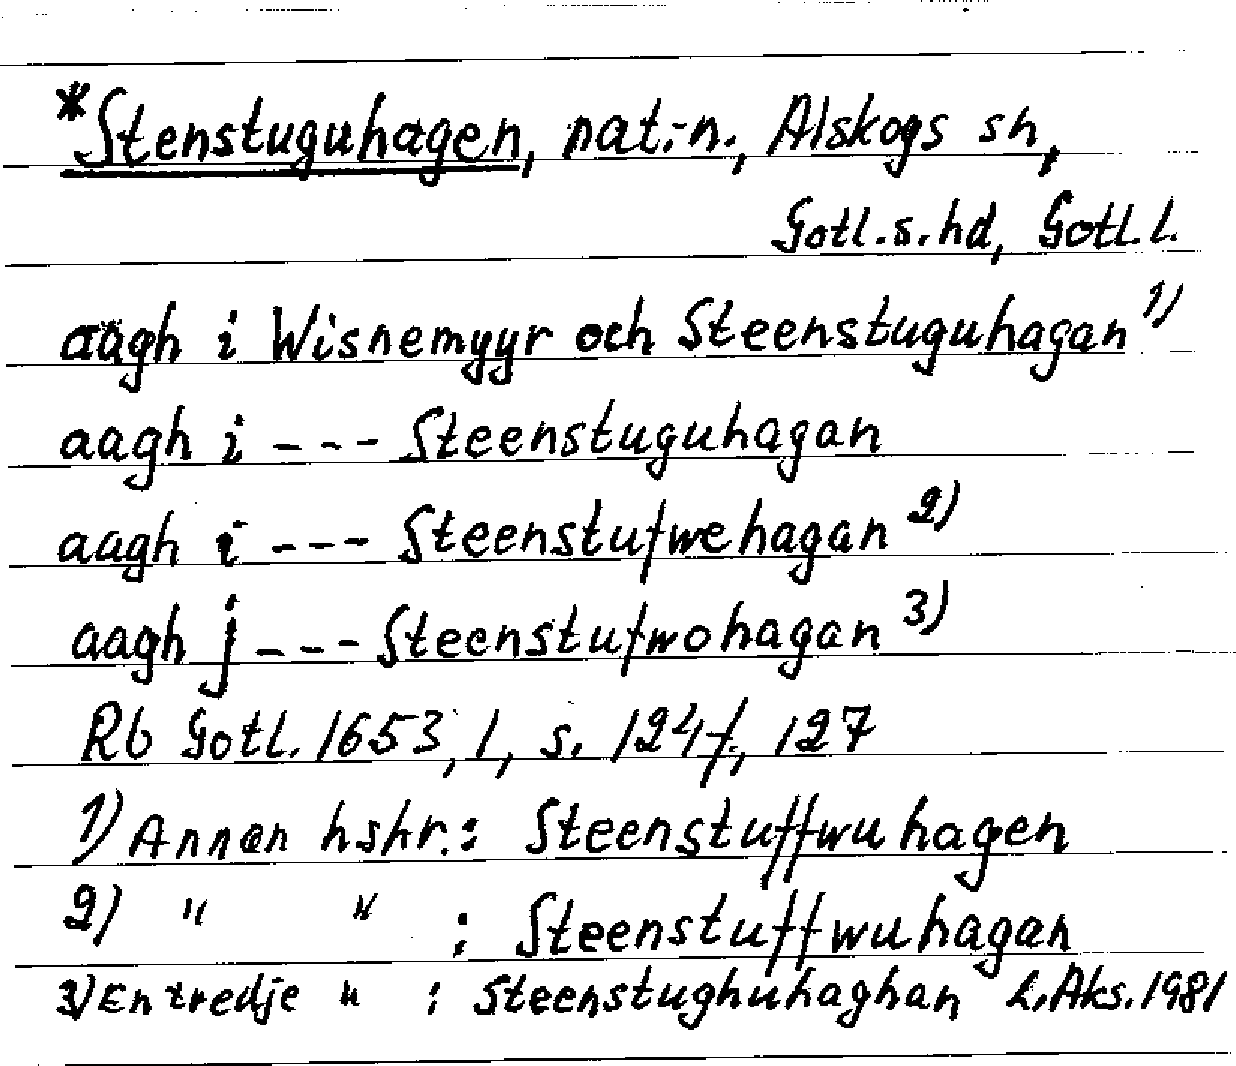 *Stenstuguhagen, nat.-n., Alskogs sn,
Gotl.s.hd, Gotl.l.
aagh i Wisnemyyr och Steenstuguhagan 1)
aagh i --- Steenstuguhagan
aagh i --- Steenstufwehagan 2)
aagh j --- Steenstufwohagan 3)
Rb Gotl. 1653, 1, s. 124f., 127
1) Annan hskr.: Steenstuffwuhagen
2) " " : Steenstuffwuhagan
3) En tredje " : Steenstughuhaghan L. Aks. 1981